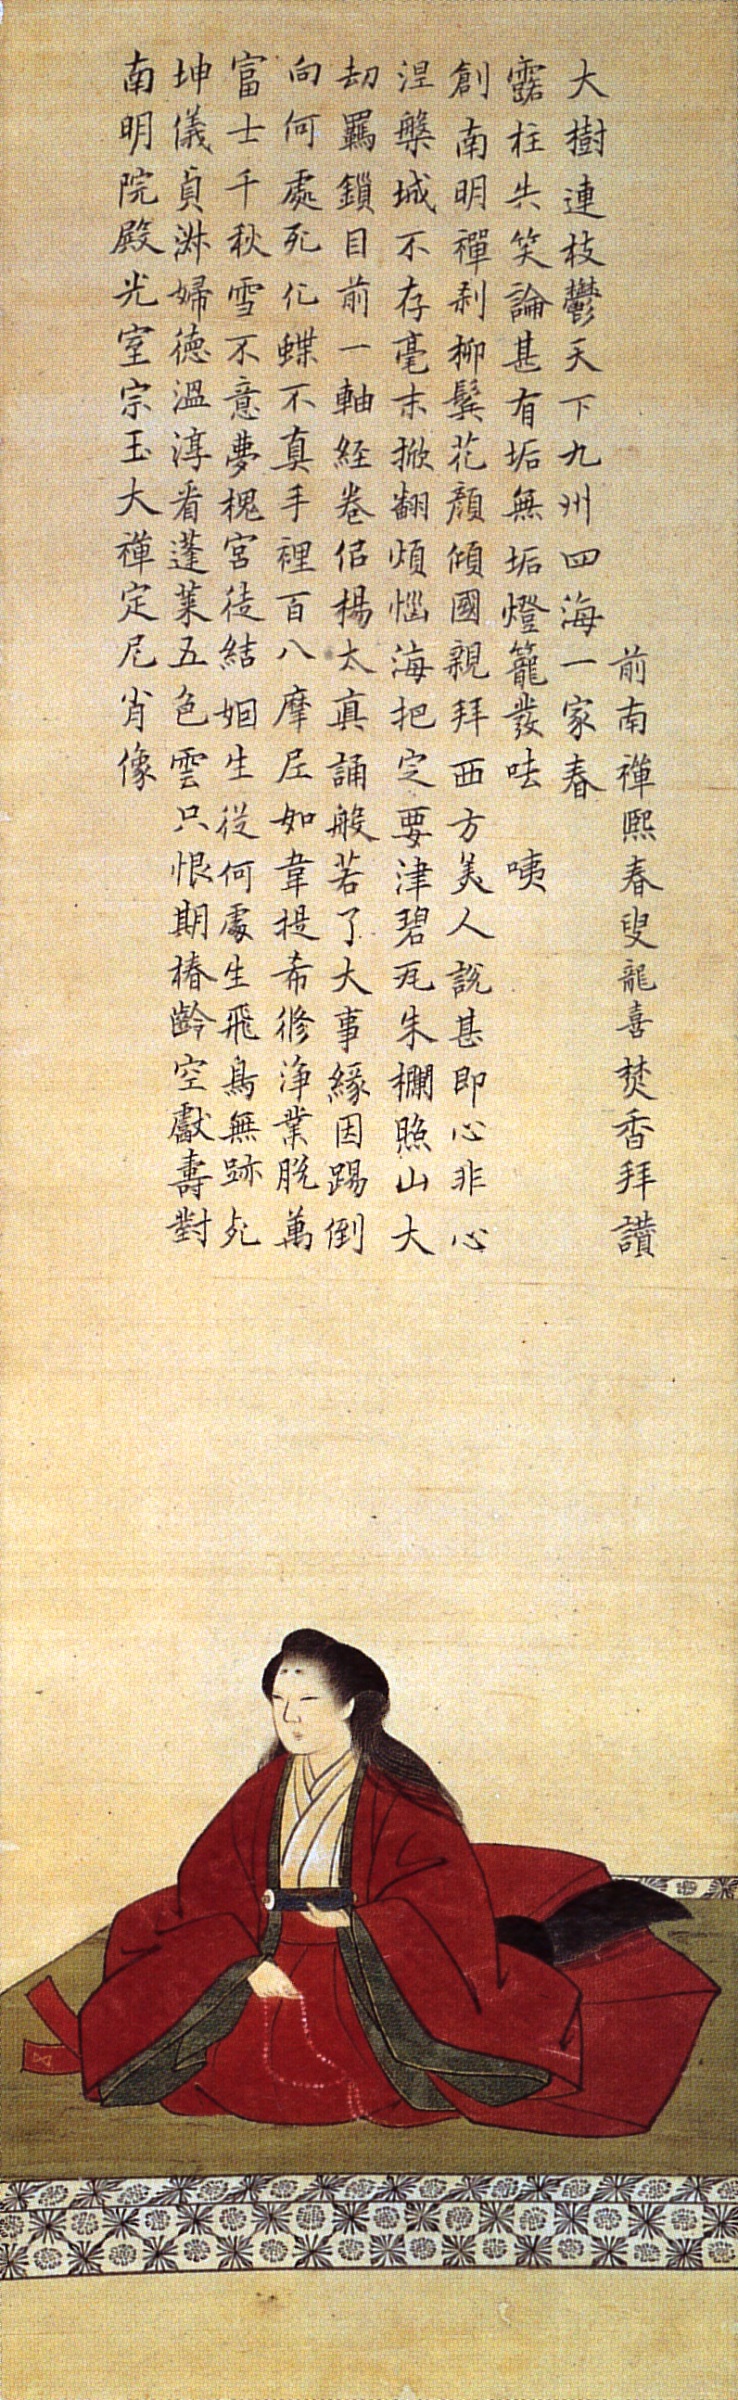 南明院殿光室宗玉大禪定尼肖像
坤儀貞淋婦徳溫淳看蓬萊五色雲只恨期椿齡空獻壽對
富士千秋雪不意夢槐宮徒結姻生從何處生飛鳥無跡死
向何處死化蝶不真手裡百八摩尼如韋提希修淨業脱萬
劫羈鎖目前一軸経卷侣楊太真誦般若了大事緣因踢倒
涅槃城不存毫末掀翻煩惱海把定要津碧瓦朱欄照山大
創南明禪刹柳鬂花顏傾國親拜西方美人説甚即心非心
露柱共笑論甚有垢無垢燈籠發呿 咦
大樹連枝鬱天下九州四海一家春
前南禪熙春叟龍喜焚香拜讃